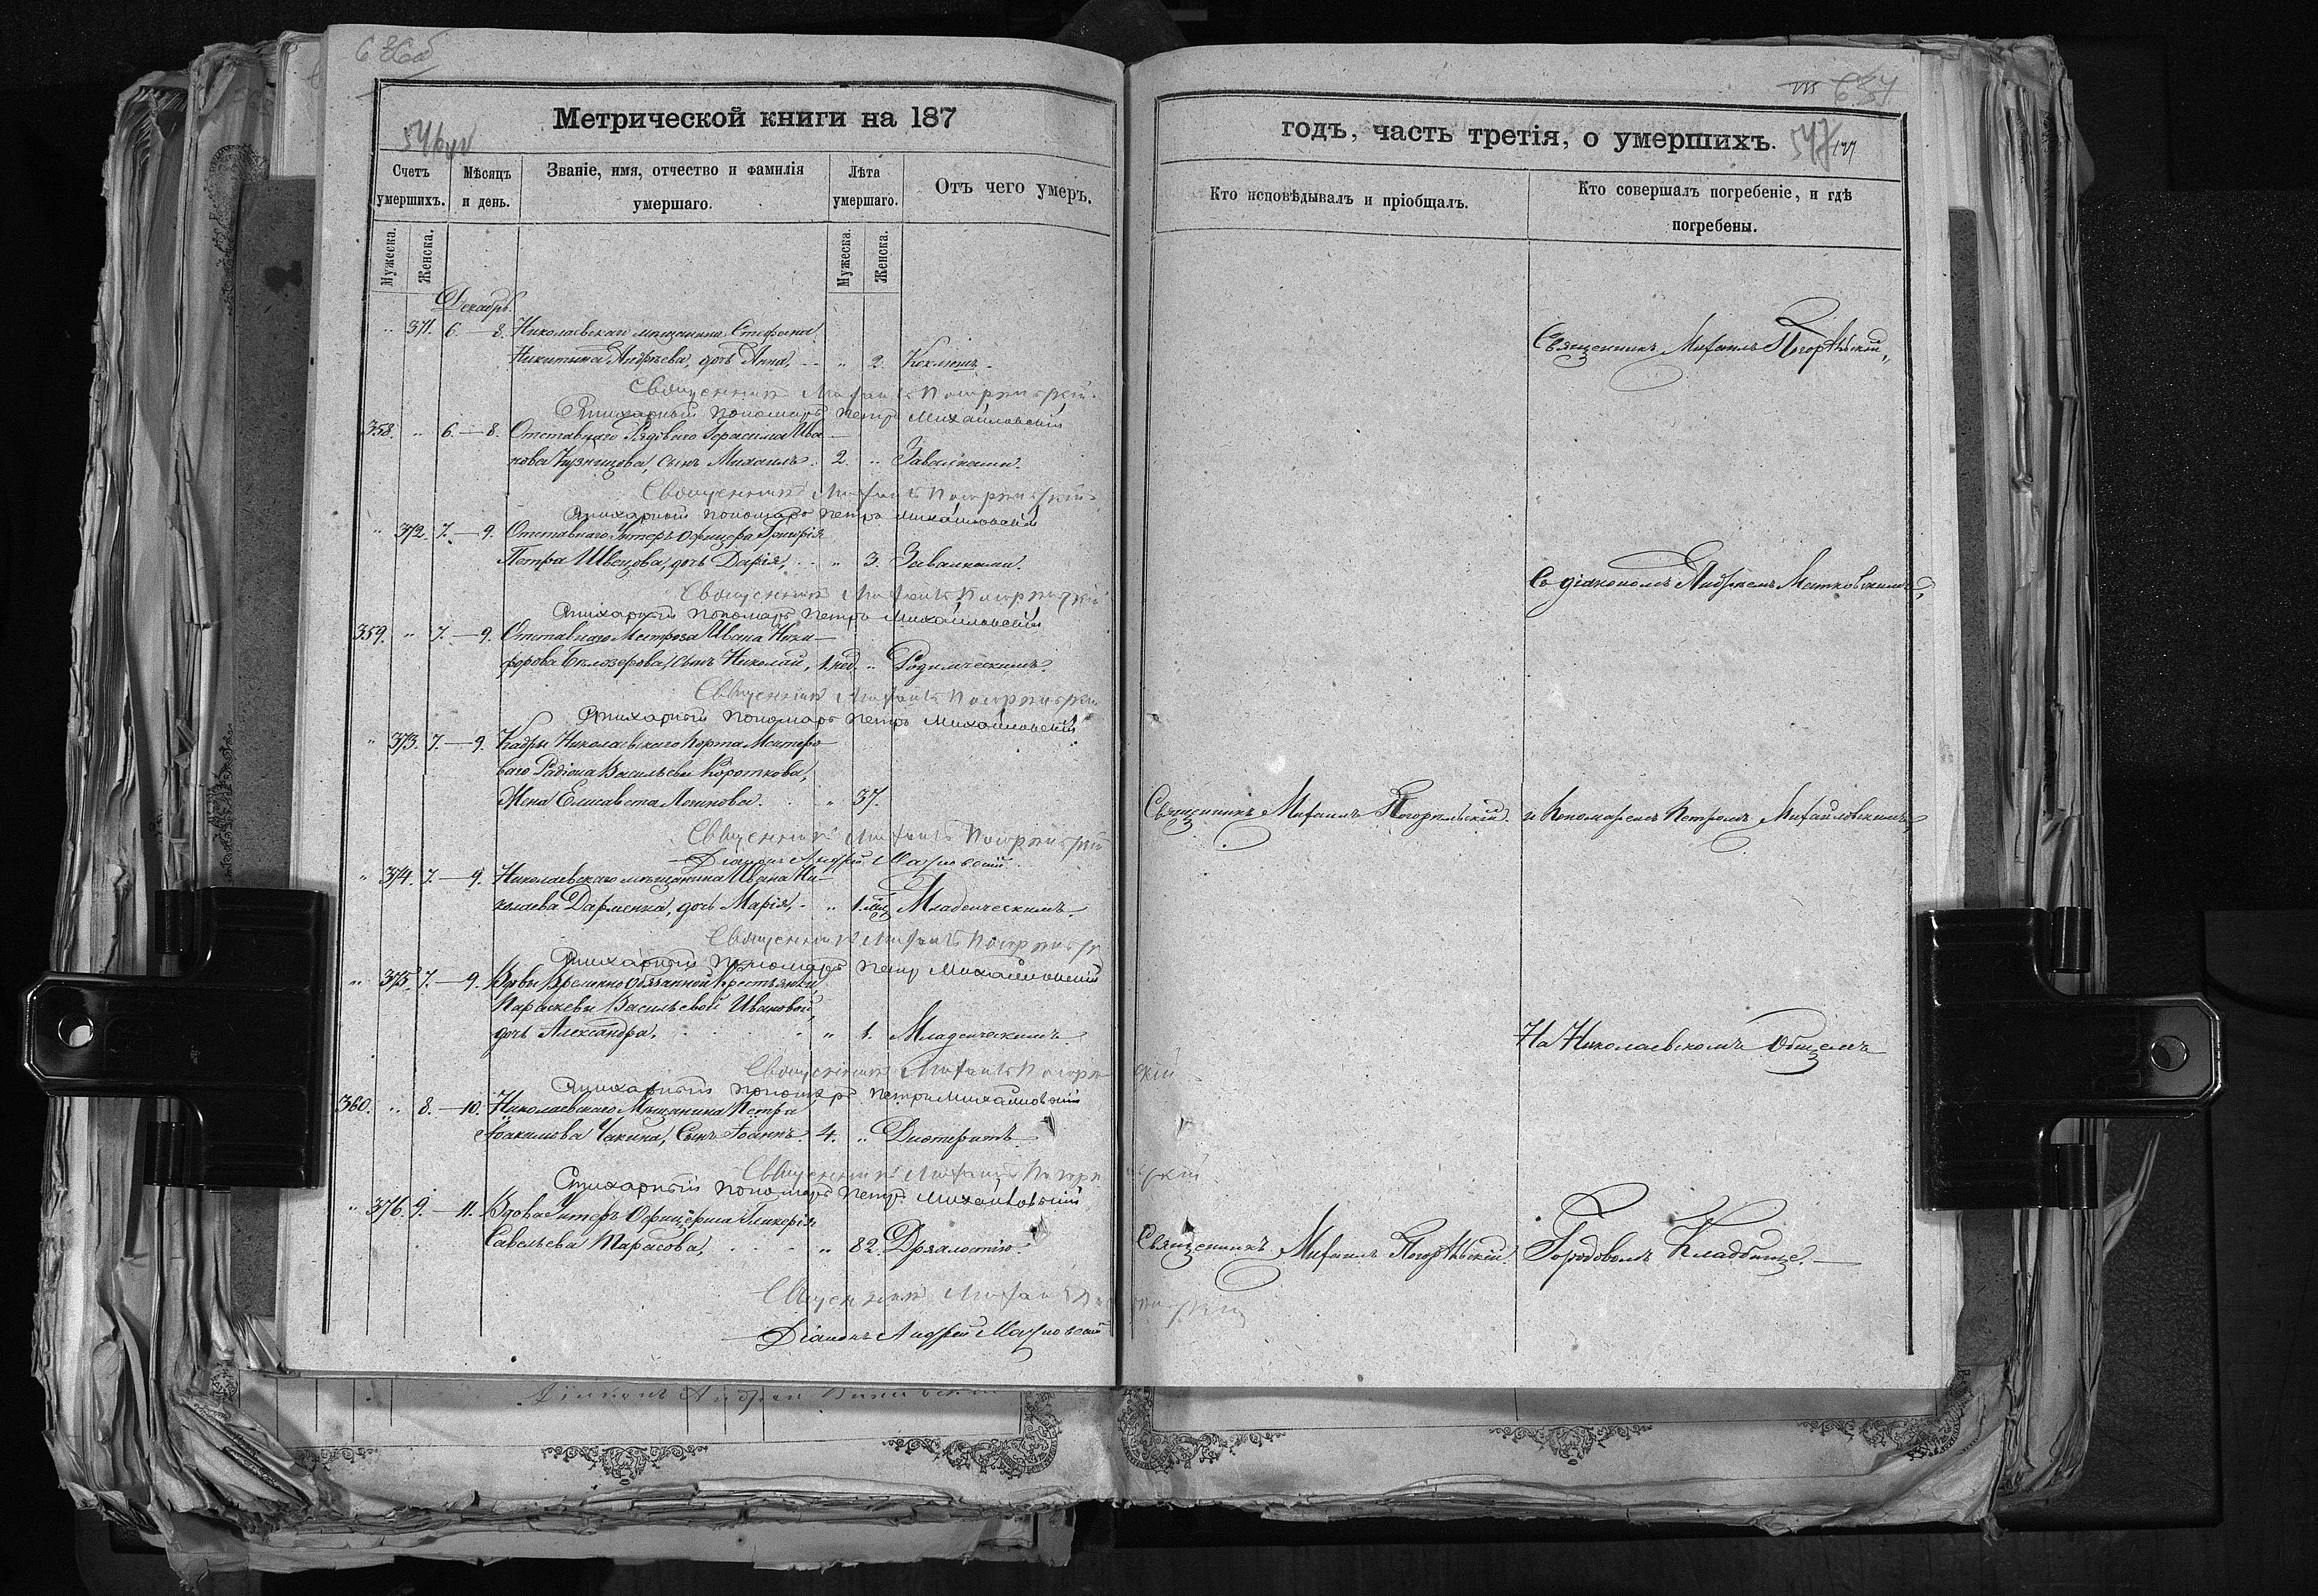 Метрической книги на 187
Счетъ умершихъ.
Мѣсяцъ и день.
Званіе, имя, отчество и фамилія умершаго.
Лѣта умершаго.
Отъ чего умеръ.
Мужеска.
Женска.
Мужеска.
Женска.
Декабрь.
371. 6.—8. Николаевскаго мѣщанина Стефана
Никитина Андреева, дочь Анна, 2. Коклюшъ.
Священникъ Михаилъ Погорѣльскій
Стихарный Пономарь Петръ Михайловскій
358. 6.—8. Отставнаго Рядоваго Герасима Ива
нова Кузнецова, сынъ Михаилъ. 2. Завалками.
Священникъ Михаилъ Погорѣльскій
Стихарный Пономарь Петръ Михайловскій
372. 7.—9. Отставнаго Унтеръ Офицера Григорія
Петра Швецова, дочь Дарія, 3. Завалками.
Священникъ Михаилъ Погорѣльскій
Стихарный Пономарь Петръ Михайловскій
359. 7.—9. Отставнаго Матроза Ивана Ники—
форова Бѣлозерова, сынъ Николай, 1. нед. Родимческимъ.
Священникъ Михаилъ Погорѣльскій
Стихарный Пономарь Петръ Михайловскій
373. 7.—9. Кадры Николаевскаго Порта Мастеро—
ваго Радіона Васильева Короткова,
Жена Елисавета Логинова. 37.
Священникъ Михаилъ Погорѣльскій
Діаконъ Андрей
374. 7.—9. Николаевскаго мѣщанина Ивана Ни—
колаева дочь Марія, 1. Младенческимъ.
Священникъ Михаилъ Погорѣльскій
Стихарный Пономарь Петръ Михайловскій
375. 7.—9. Временно Обязанной Крестьянки,
Параскевы Васильевой Ивановой,
дочь Александра. 1. Младенческимъ.
Священникъ Михаилъ Погорѣльскій
Стихарный Пономарь Петръ Михайловскій
360. 8.—10. Николаевскаго Мѣщанина Петра
Іоакимова Чакина, Сынъ Іоаннъ. 4. Диотеритъ.
Священникъ Михаилъ Погорѣльскій
Стихарный Пономарь Петръ Михайловскій
376. 9.—11. Вдова Унтеръ Офицерша Гликерія
Савельева Тарасова, 82. Дряхлостію.
Священникъ Михаилъ Погорѣльскій
Діаконъ Андрей
годъ, часть третія, о умершихъ.
547
Кто исповѣдывалъ и пріобщалъ.
Кто совершалъ погребеніе, и гдѣ погребены.
Священникъ Михаилъ Погорѣльскій,
Со діакономъ Андреемъ
Священникъ Михаилъ Погорѣльскій. и Пономаремъ Петромъ Михайловскимъ,
На Николаевскомъ Общемъ
Священникъ Михаилъ Погорѣльскій. Городовомъ Кладбище.—